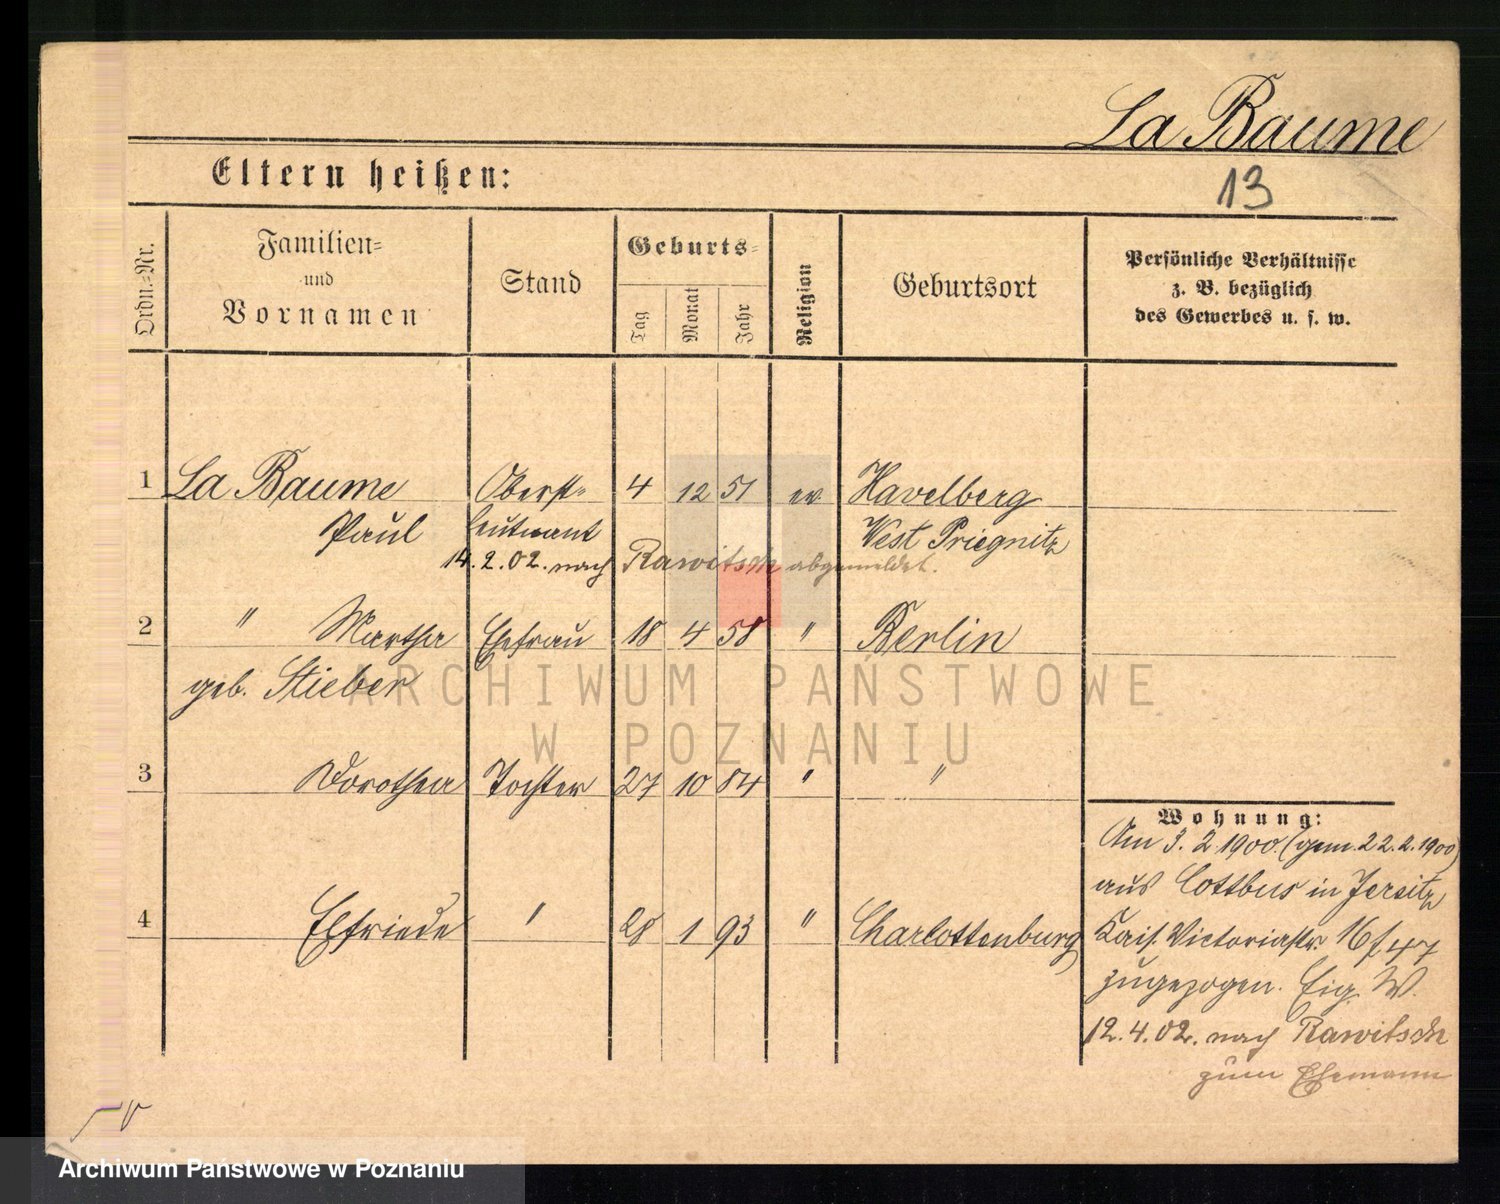 La Baume
Eltern heißen:
13
Ordn.-Nr.
Familien-
und
Vornamen
Stand
Geburts-
Tag
Monat
Jahr
Religion
Geburtsort
Persönliche Verhältnisse
z. B. bezüglich
des Gewerbes u. s. w.
1 La Baume Oberst- 4 12 51 ev. Havelberg
Paul leutnant West Priegnitz
14.2.02. nach Rawitsch abgemeldet.
2 " Martha Ehefrau 18 4 58 " Berlin
geb. Stieber
ARCHIWUM PAŃSTWOWE
W POZNANIU
3 Dorothea Tochter 27 10 84 " "
4 Elfriede " 28 1 93 " Charlottenburg
Wohnung:
Am 3.2.1900 (gem. 22.2.1900)
aus Cottbus in Jersitz
Kais. Victoriastr. 16/47
zugezogen. Eig. W.
12.4.02. nach Rawitsch
zum Ehemann
Archiwum Państwowe w Poznaniu